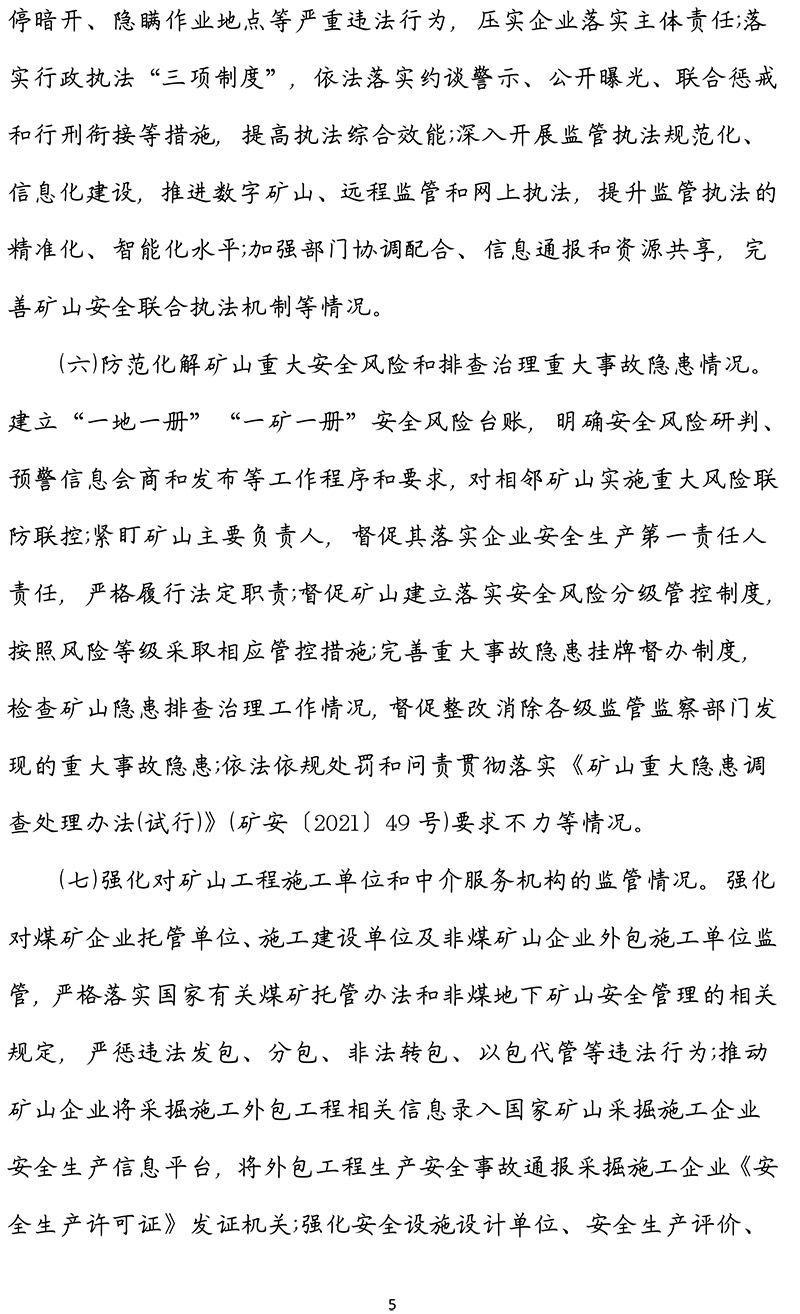 停暗开、隐瞒作业地点等严重违法行为，压实企业落实主体责任;落
实行政执法“三项制度”，依法落实约谈警示、公开曝光、联合惩戒
和行刑衔接等措施，提高执法综合效能;深入开展监管执法规范化、
信息化建设，推进数字矿山、远程监管和网上执法，提升监管执法的
精准化、智能化水平;加强部门协调配合、信息通报和资源共享，完
善矿山安全联合执法机制等情况。
(六)防范化解矿山重大安全风险和排查治理重大事故隐患情况。
建立“一地一册”“一矿一册”安全风险台账，明确安全风险研判、
预警信息会商和发布等工作程序和要求，对相邻矿山实施重大风险联
防联控;紧盯矿山主要负责人，督促其落实企业安全生产第一责任人
责任，严格履行法定职责;督促矿山建立落实安全风险分级管控制度，
按照风险等级采取相应管控措施;完善重大事故隐患挂牌督办制度，
检查矿山隐患排查治理工作情况，督促整改消除各级监管监察部门发
现的重大事故隐患;依法依规处罚和问责贯彻落实《矿山重大隐患调
查处理办法(试行)》(矿安〔2021〕49 号)要求不力等情况。
(七)强化对矿山工程施工单位和中介服务机构的监管情况。强化
对煤矿企业托管单位、施工建设单位及非煤矿山企业外包施工单位监
管，严格落实国家有关煤矿托管办法和非煤地下矿山安全管理的相关
规定，严惩违法发包、分包、非法转包、以包代管等违法行为;推动
矿山企业将采掘施工外包工程相关信息录入国家矿山采掘施工企业
安全生产信息平台，将外包工程生产安全事故通报采掘施工企业《安
全生产许可证》发证机关;强化安全设施设计单位、安全生产评价、
5